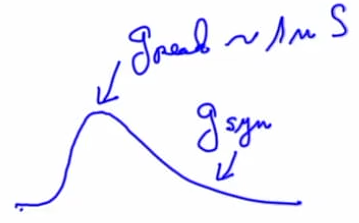 gpeak ~ 1nS
gsyn